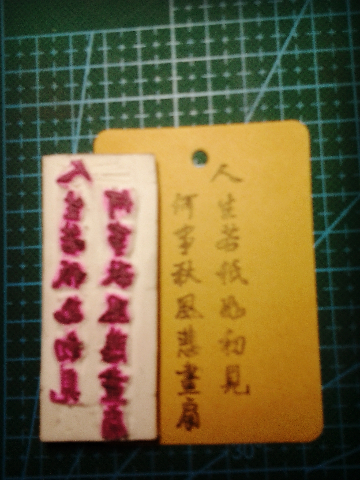 人生若祇如初見
何事秋風悲畫扇
人生若祇如初見
何事秋風悲畫扇